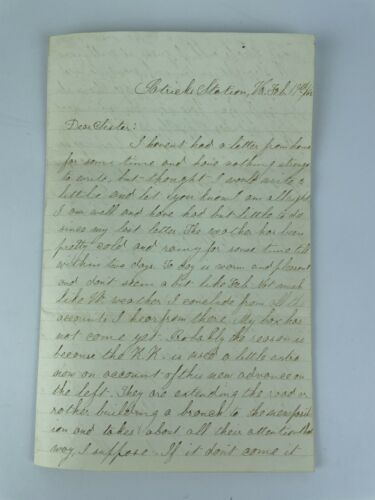 Station, Va. Feb. 19th/65
Dear Sister:
I havent had a letter from home
for some time and have nothing strange
to write, but thought I would write a
little and let you know I am all right
I am well and have had but little to do
since my last letter. The weather has been
pretty cold and rainy for some time till
within two days. To day is warm and pleasant
and dont seem a bit like Feb. Not much
like Vt. weather I conclude from all the
accounts I hear from there. My box has
not come yet. Probably the reason is
because the R.R. is used a little extra
now on account of this new advance on
the left. They are extending the road or
rather building a branch to the new posit
ion and takes about all their attention that
way, I suppose. If it dont come it